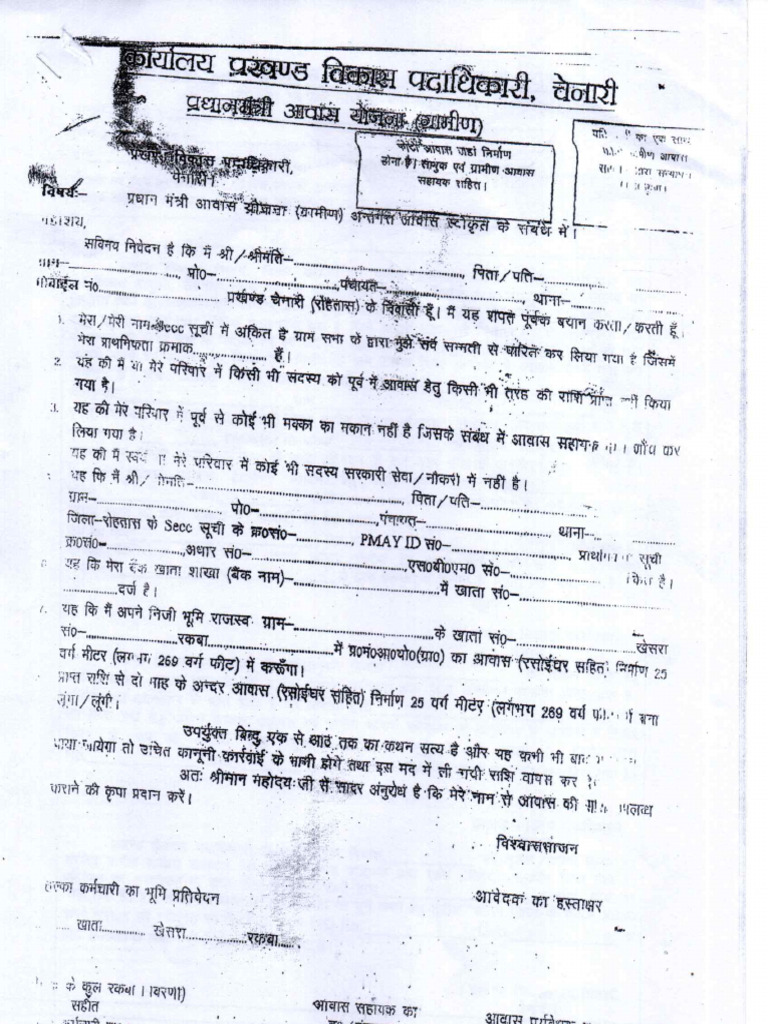 कार्यालय प्रखण्ड विकास पदाधिकारी, चेनारी
प्रधानमंत्री आवास योजना (ग्रामीण)
फोटो आवास जहां निर्माण
होना है। लामुक एवं ग्रामीण आवास
सहायक सहित।
का एक साथ
आवास
प्रखंड विकास पदाधिकारी,
चेनारी।
विषयः- प्रधान मंत्री आवास योजना (ग्रामीण) अन्तर्गत आवास स्वीकृत के संबंध में।
महाशय,
सविनय निवेदन है कि मैं श्री/श्रीमति-...................., पिता/पति-....................
ग्राम-...................., पो0-....................,पंचायत-...................., थाना-....................
मोबाईल नं0.................... प्रखण्ड चेनारी (रोहतास) के निवासी हूँ। मैं यह शपत पूर्वक बयान करता/करती हूँ।
1. मेरा/मेरी नाम Secc सूची में अंकित है ग्राम सभा के द्वारा मुझे सर्व सम्मती से पारित कर लिया गया है जिसमें
मेरा प्राथमिकता क्रमाक.................... हैं।
2. यह की मैं या मेरे परिवार में किसी भी सदस्य को पूर्व में आवास हेतु किसी भी तरह की राशि प्राप्त नहीं किया
गया है।
3. यह की मेरे परिवार में पूर्व से कोई भी मक्का का मकान नहीं है जिसके संबंध में आवास सहायक जाँच कर
लिया गया है।
यह की मैं स्वयं मेरे परिवार में कोई भी सदस्य सरकारी सेवा/नौकरी में नहीं है।
यह कि मैं श्री/श्रीमति-...................., पिता/पति-....................
ग्राम-.................... पो0-....................,पंचायत-.................... थाना-....................
जिला-रोहतास के Secc सूची के क्र0सं0-...................., PMAY ID सं0-...................., सूची
क्र0सं0-....................,अधार सं0-....................,एस0बी0एम0 सं0-.................... है।
यह कि मेरा बैंक खाता शाखा (बैंक नाम)-....................में खाता सं0-....................
....................दर्ज है।
यह कि मैं अपने निजी भूमि राजस्व ग्राम-....................के खाता सं0-....................खेसरा
सं0-....................रकबा....................में प्र0मं0आ0यो0(ग्रा0) का आवास (रसोईघर सहित) निर्माण 25
वर्ग मीटर (लगभग 269 वर्ग फीट) में करूँगा।
प्राप्त राशि से दो माह के अन्दर आवास (रसोईघर सहित) निर्माण 25 वर्ग मीटर (लगभग 269 वर्ग बना
लूंगा/लूंगी।
उपर्युक्त बिन्दु एक से आठ तक का कथन सत्य है और यह कभी भी बाद
पाया जायेगा तो उचित कानूनी कार्रवाई के भागी होंगे तथा इस मद में ली गयी राशि वापस कर
अतः श्रीमान महोदय जी से सादर अनुरोध है कि मेरे नाम से आवास की
कराने की कृपा प्रदान करें।
विश्वासभाजन
आवेदक का हस्ताक्षर
कर्मचारी का भूमि प्रतिवेदन
..... खाता............ खेसरा....................रकबा......
के कुल रकबा
सहीत
आवास सहायक का